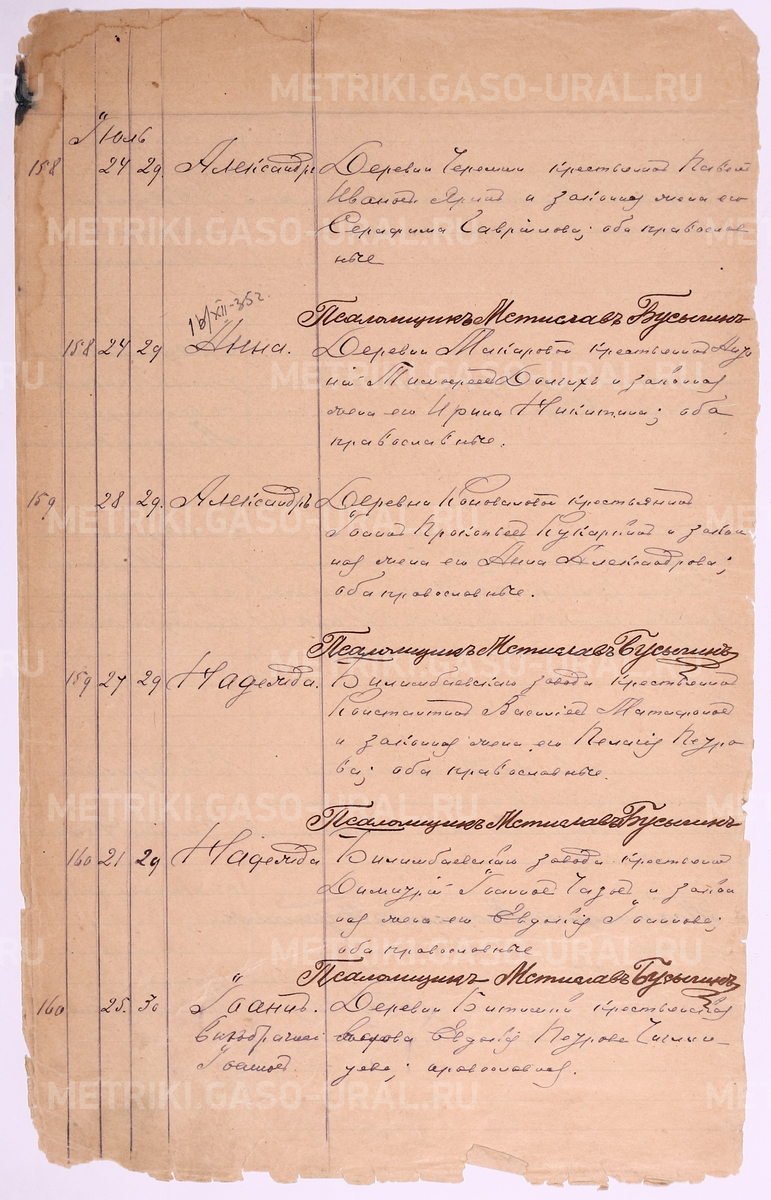 METRIKI.GASO-URAL.RU
Июль
158 24 29. Александръ Деревни Черемши крестьянинъ Павелъ
Ивановъ Яринъ и законная жена его
Серафима Гаврилова; оба православ
ные
16/XII-35г.
Псаломщикъ Мстиславъ Бусыгинъ
158 24 29 Анна. Деревни Макаровой крестьянинъ
Тимофеевъ Долгихъ и законная
жена его Ирина Никитина; оба
православные.
159 28 29. Александръ Деревни Коноваловой крестьянинъ
Іоаннъ Прокопьевъ и закон
ная жена его Анна Александрова;
оба православные.
Псаломщикъ Мстиславъ Бусыгинъ
159 27 29 Надежда. Билимбаевскаго завода крестьянинъ
Константинъ Василіевъ
и законная жена его Пелагія Петро
ва; оба православные.
Псаломщикъ Мстиславъ Бусыгинъ
160 21 29 Надежда Билимбаевскаго завода крестьянинъ
Димитрій Іоанновъ Чазовъ и закон
ная жена его Евдокія Іоаннова;
оба православные
Псаломщикъ Мстиславъ Бусыгинъ
160 25. 30 Іоаннъ. Деревни Битимки крестьянская
внебрачный Евдокія Петрова
Іоанновъ. православная.